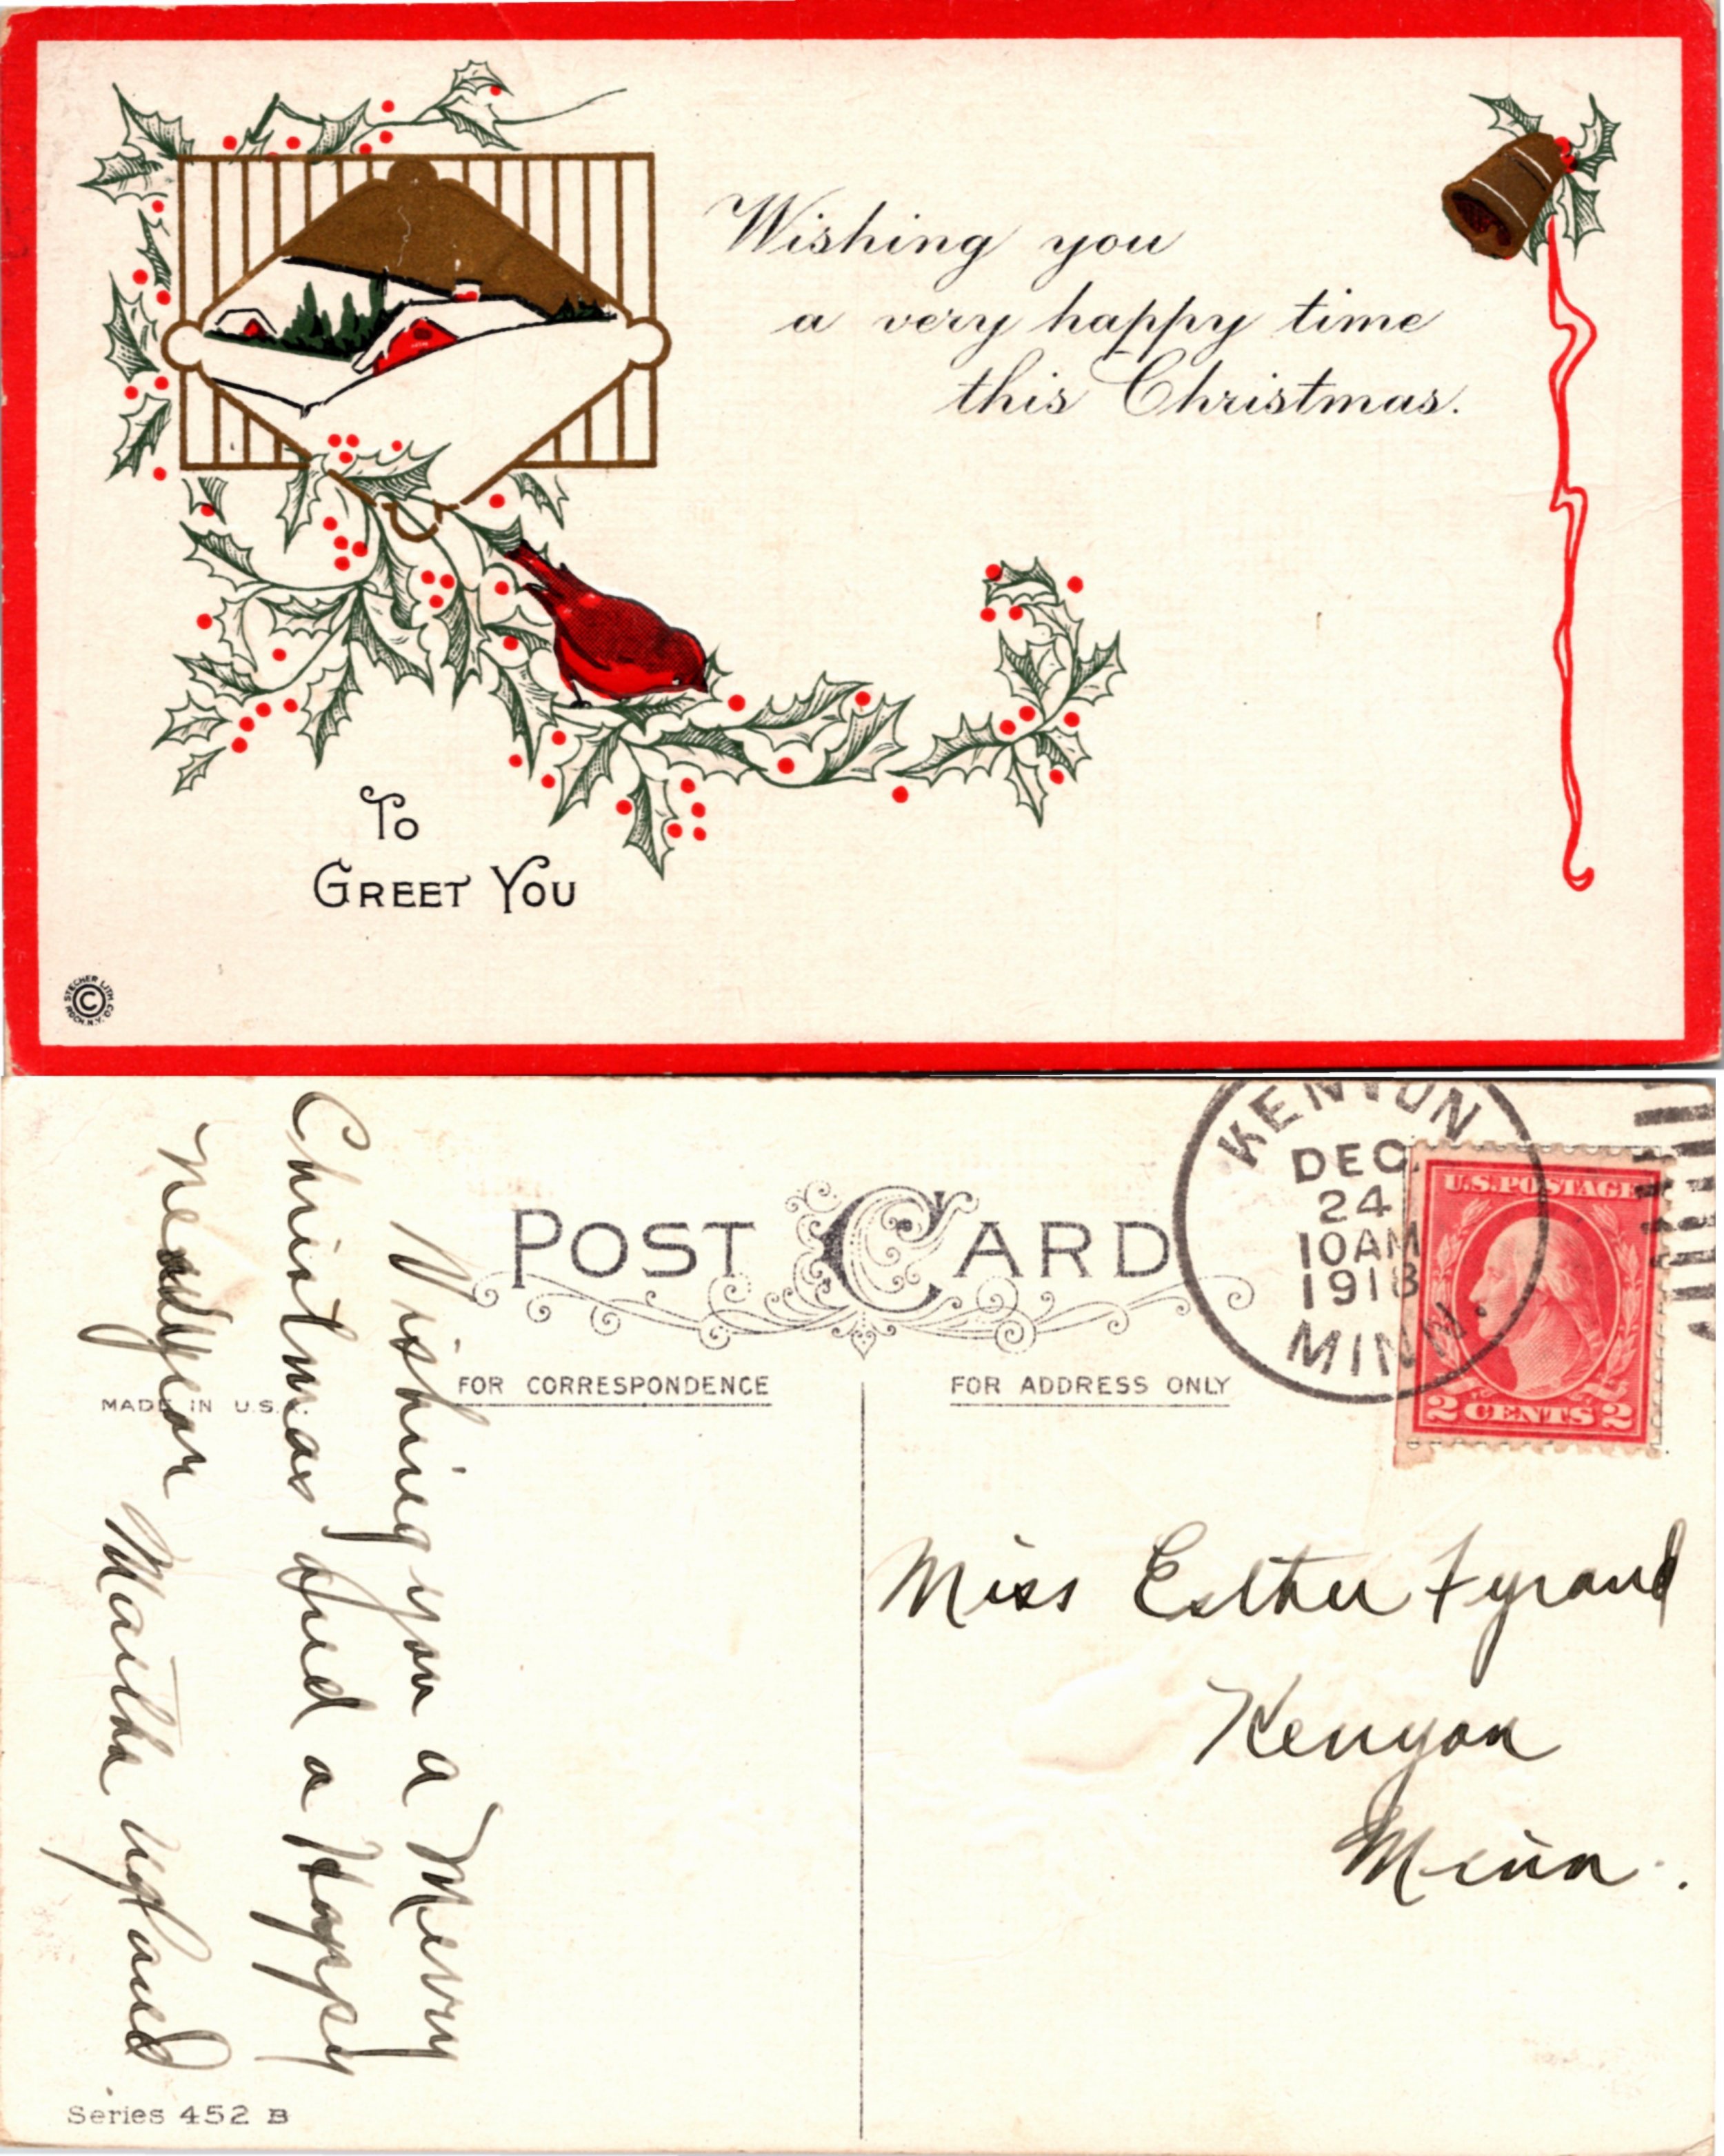 Wishing you
a very happy time
this Christmas.
To
Greet You
STECHER LITH. CO.
ROCH. N.Y.
©
POST CARD
FOR CORRESPONDENCE
FOR ADDRESS ONLY
MADE IN U.S.A.
KENYON
DEC.
24
10AM
1918
MINN.
U.S. POSTAGE
2 CENTS 2
Wishing you a Merry
Christmas and a Happy
New year
Miss Esther Fyrand
Kenyon
Minn.
Series 452 B